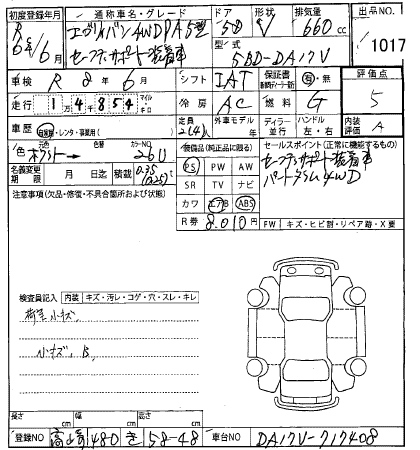 初度登録年月 通称車名・グレード ドア 形状 排気量 出品NO
R 6年 6月 エヴリィバン 4WD PA 5型 5D V 660cc 1017
セーフティサポート装着車 型式 5BD-DA17V
車検 R 8年 6月 シフト IAT 保証書 有・無 評価点
走行 1万4854 マイル キロ 冷房 AC 燃料 G 5
車歴 自家用・レンタ・事業用( ) 定員 2(4)人 外車モデル 年 ディーラー 並行 ハンドル 左・右 内装評価 A
色 ホワイト→ カラーNO 26U 装備品(純正品に限る) セールスポイント(正常に機能するもの)
名義変更期限 月 日迄 積載 0.35(0.25)t PS PW AW セーフティサポート装着車
注意事項(欠品・修復・不具合箇所などの申告) SR TV ナビ パートタイム4WD
カワ エアB ABS
R券 8,010円 FW キズ・ヒビ割・リペア跡・X要
検査員記入 内装 キズ・汚レ・コゲ・穴・スレ・キレ
荷室小キズ
小キズ、B
長さ cm 幅 cm 高さ cm
登録NO 480 き 58-48 車台NO DA17V-717408